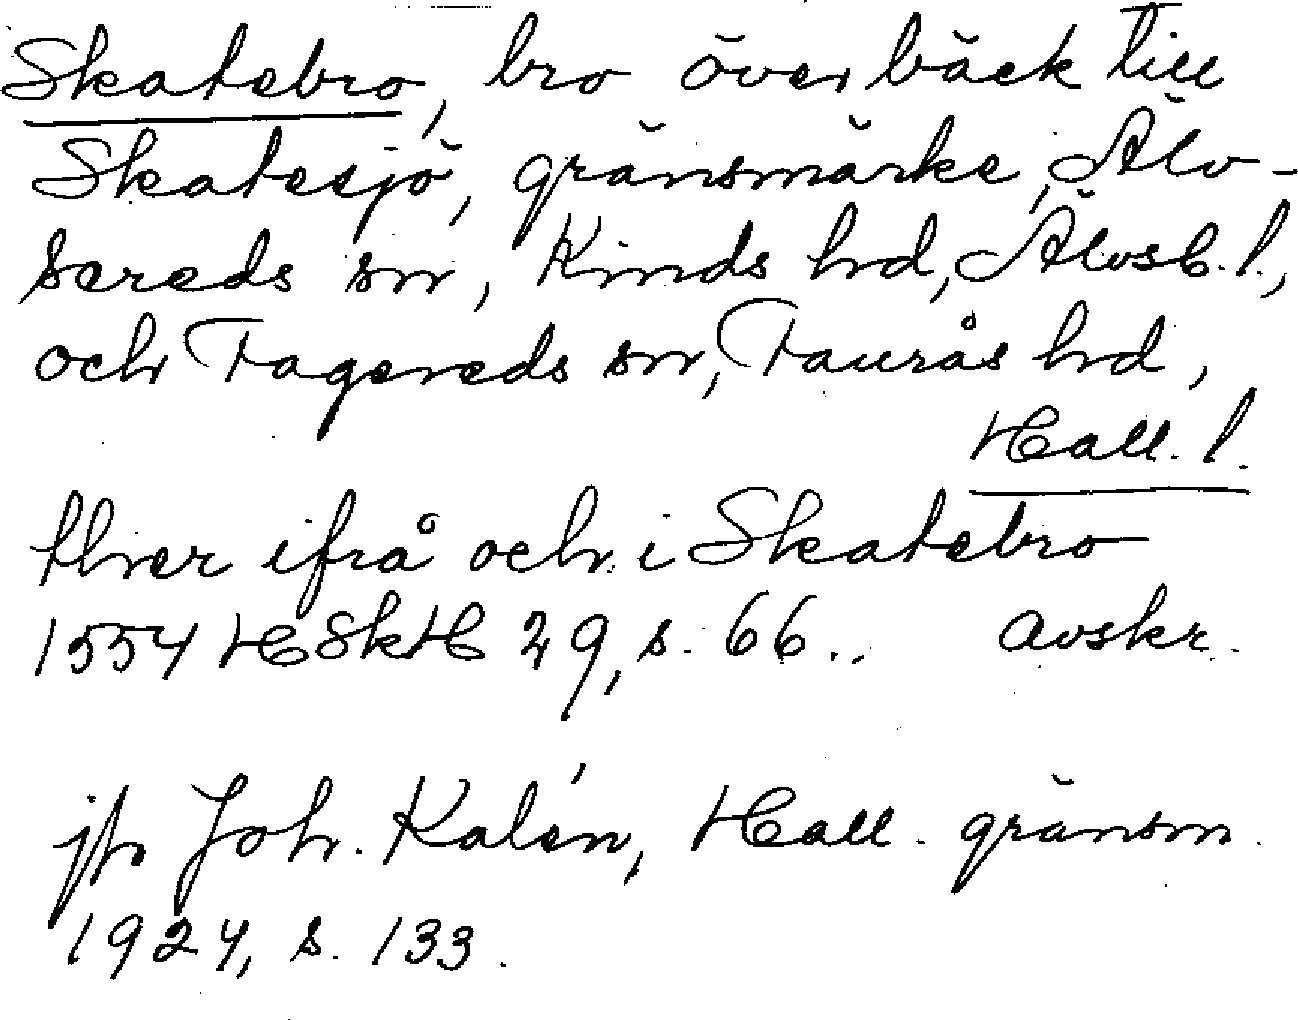 Skatebro, bro över bäck till
Skatesjö, gränsmärke, Älv-
sereds sn, Kinds hd, Älvsb. l.,
och Fagereds sn, Faurås hd,
Hall. l.
ther ifrå och i Skatebro
1554 HSkH 29, s. 66.. avskr.
jfr Joh. Kalén, Hall. gränsm.
1924, s. 133.